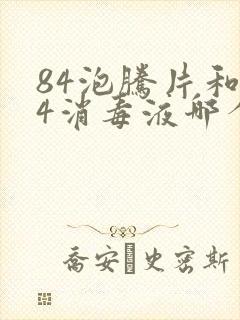 84泡腾片和
4消毒液哪
乔安□史密斯